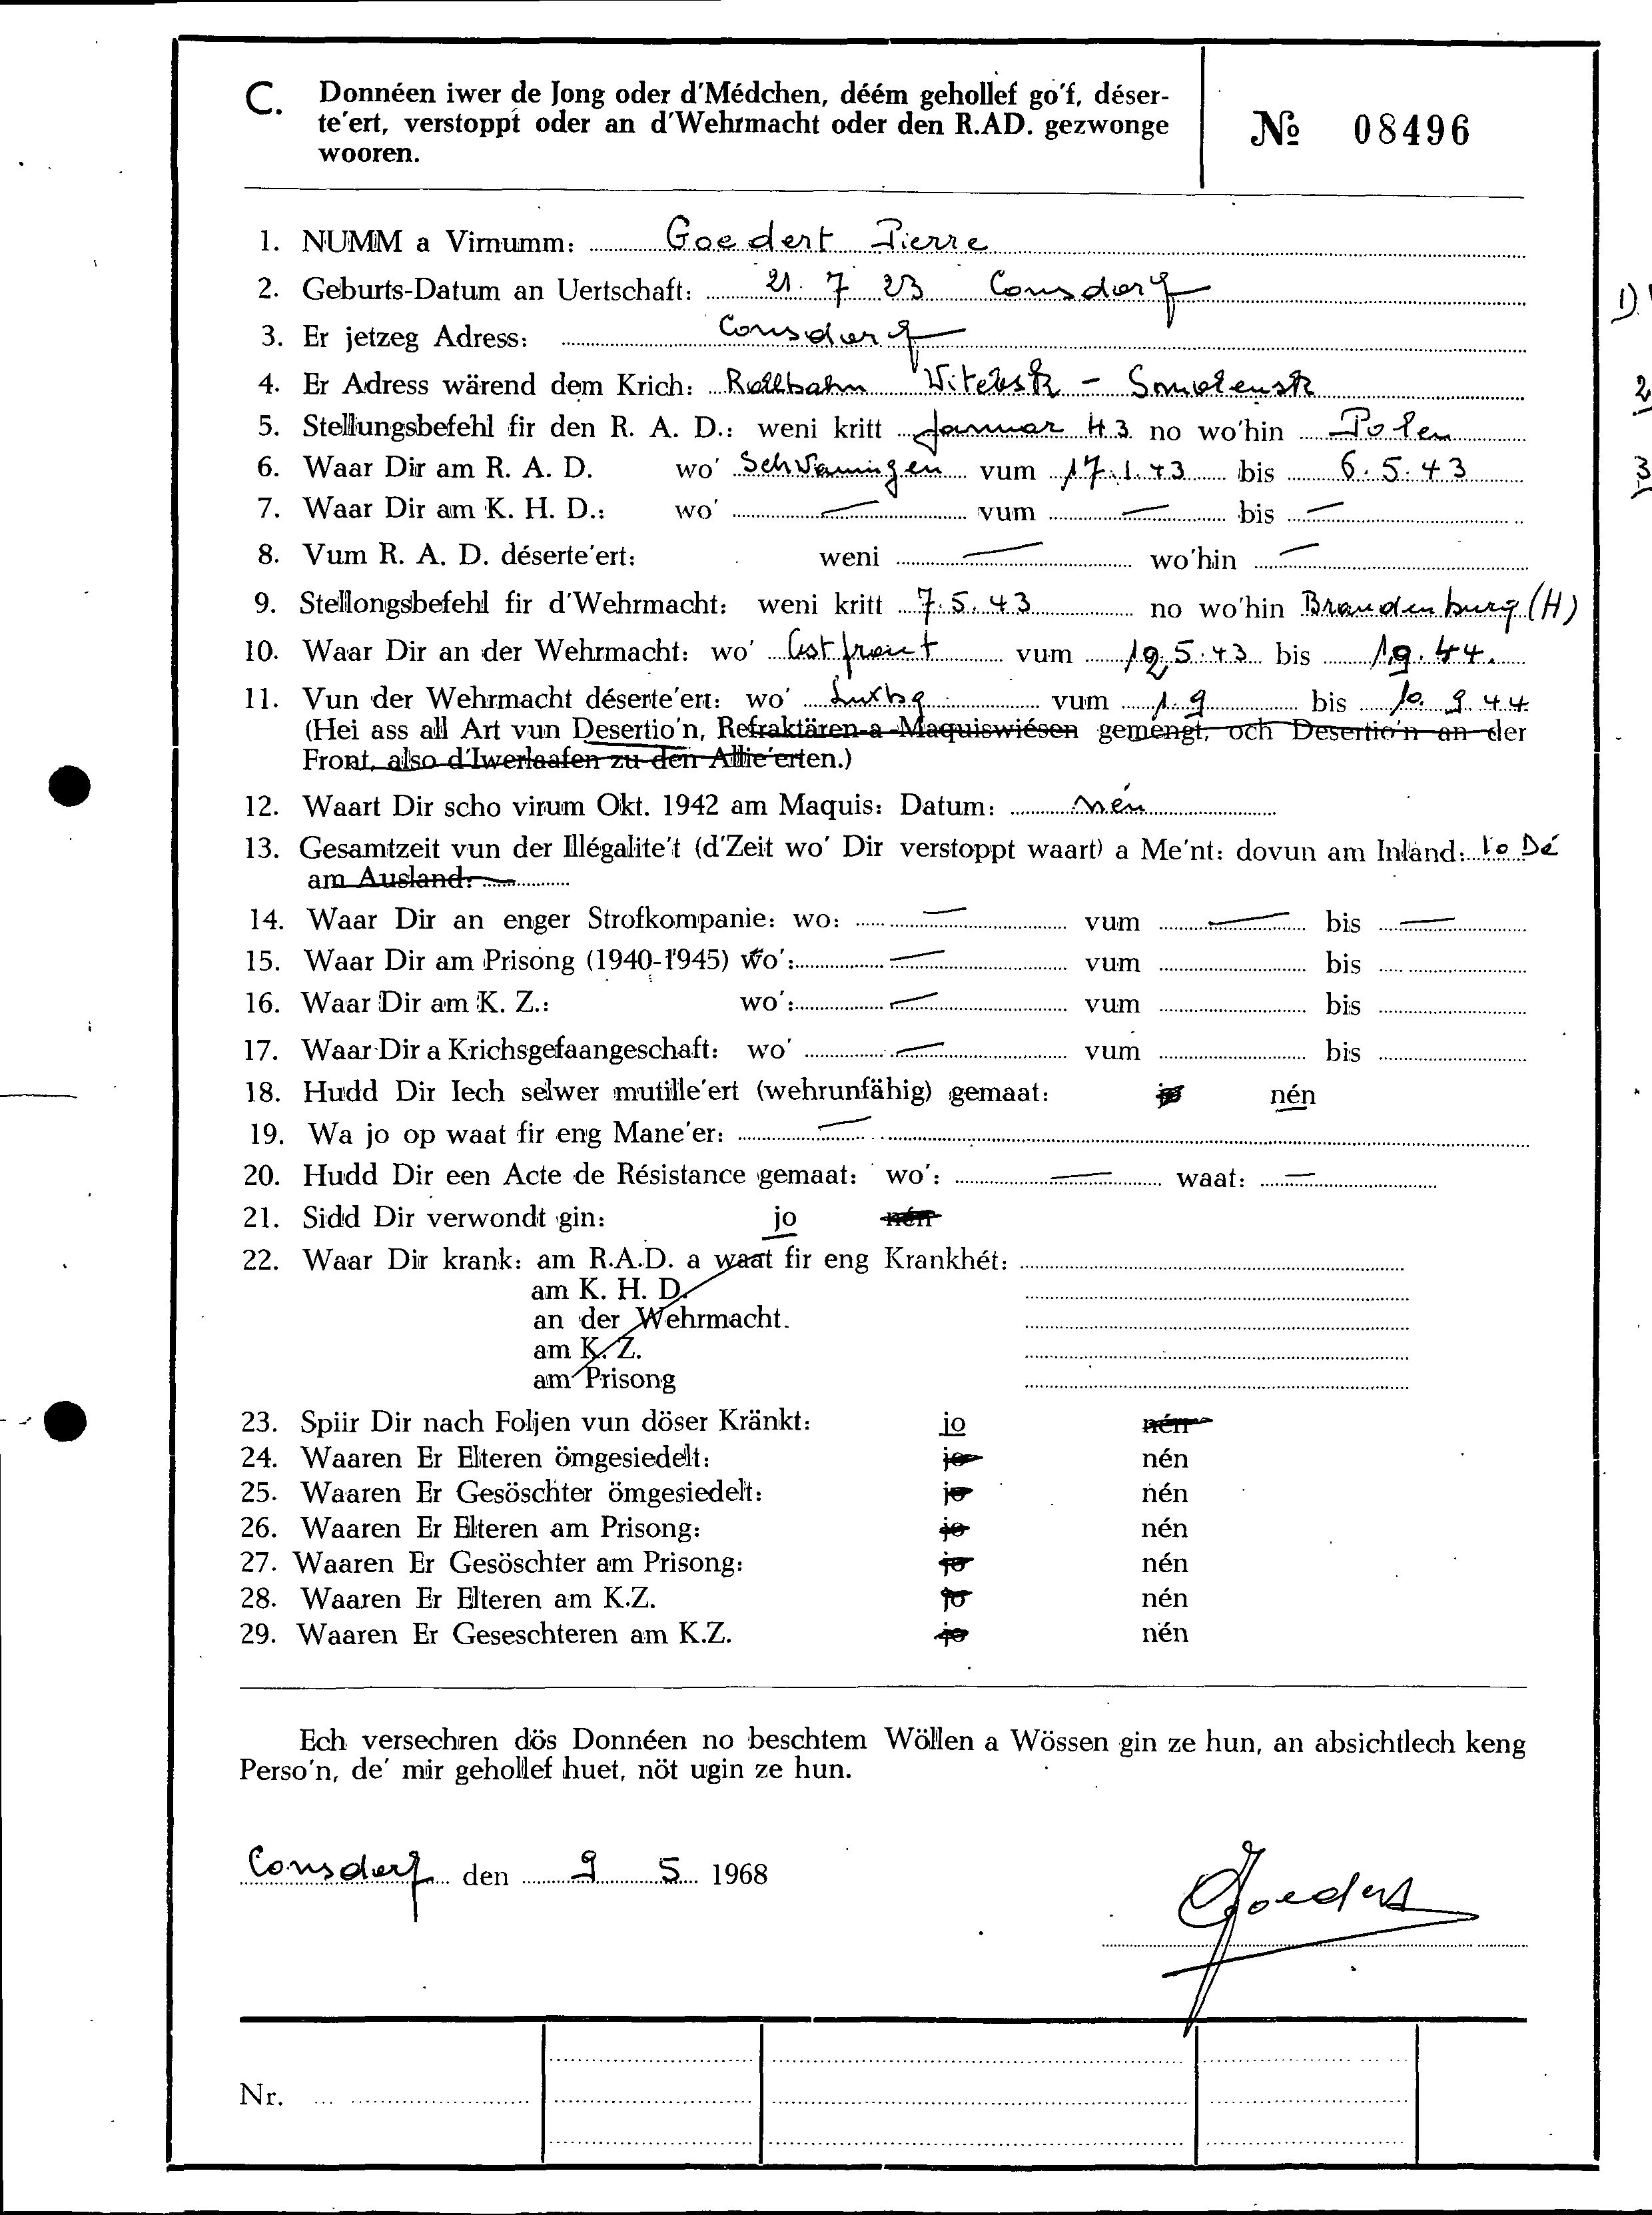 C. Donnéen iwer de Jong oder d'Médchen, déém gehollef go'f, déser-
te'ert, verstoppt oder an d'Wehrmacht oder den R.AD. gezwonge
wooren.
№ 08496
1. NUMM a Virnumm: Goedert Pierre
2. Geburts-Datum an Uertschaft: 21. 7 23 Consdorf
1)
3. Er jetzeg Adress: Consdorf
4. Er Adress wärend dem Krich: Rollbahn Witebsk - Smolensk
2
5. Stellungsbefehl fir den R. A. D.: weni kritt Januar 43 no wo'hin Polen
6. Waar Dir am R. A. D. wo' Schwaningen vum 17.1.43 bis 6.5.43
3
7. Waar Dir am K. H. D.: wo' — vum — bis —
8. Vum R. A. D. déserte'ert: weni — wo'hin —
9. Stellongsbefehl fir d'Wehrmacht: weni kritt 7.5.43 no wo'hin Brandenburg (H)
10. Waar Dir an der Wehrmacht: wo' Ostfront vum 12.5.43 bis 1.9.44.
11. Vun der Wehrmacht déserte'ert: wo' Luxbg vum 1.9 bis 10.9.44
(Hei ass all Art vun Desertio'n, Refraktären-a-Maquiswiésen gemengt, och Desertio'n an der
Front, also d'Iwerlaafen zu den Allie'erten.)
12. Waart Dir scho virum Okt. 1942 am Maquis: Datum: nén
13. Gesamtzeit vun der Illégalite't (d'Zeit wo' Dir verstoppt waart) a Me'nt: dovun am Inland: 10 Dé
am Ausland:
14. Waar Dir an enger Strofkompanie: wo: — vum — bis —
15. Waar Dir am Prisong (1940-1945) wo': — vum bis
16. Waar Dir am K. Z.: wo': — vum bis
17. Waar Dir a Krichsgefaangeschaft: wo' — vum bis
18. Hudd Dir Iech selwer mutille'ert (wehrunfähig) gemaat: jo nén
19. Wa jo op waat fir eng Mane'er: —
20. Hudd Dir een Acte de Résistance gemaat: wo': — waat: —
21. Sidd Dir verwondt gin: jo nén
22. Waar Dir krank: am R.A.D. a waat fir eng Krankhét:
am K. H. D.
an der Wehrmacht.
am K. Z.
am Prisong
23. Spiir Dir nach Foljen vun döser Kränkt: jo nén
24. Waaren Er Elteren ömgesiedelt: jo nén
25. Waaren Er Gesöschter ömgesiedelt: jo nén
26. Waaren Er Elteren am Prisong: jo nén
27. Waaren Er Gesöschter am Prisong: jo nén
28. Waaren Er Elteren am K.Z. jo nén
29. Waaren Er Geseschteren am K.Z. jo nén
Ech versechren dös Donnéen no beschtem Wöllen a Wössen gin ze hun, an absichtlech keng
Perso'n, de' mir gehollef huet, nöt ugin ze hun.
Consdorf den 9 5 1968
Goedert
Nr.